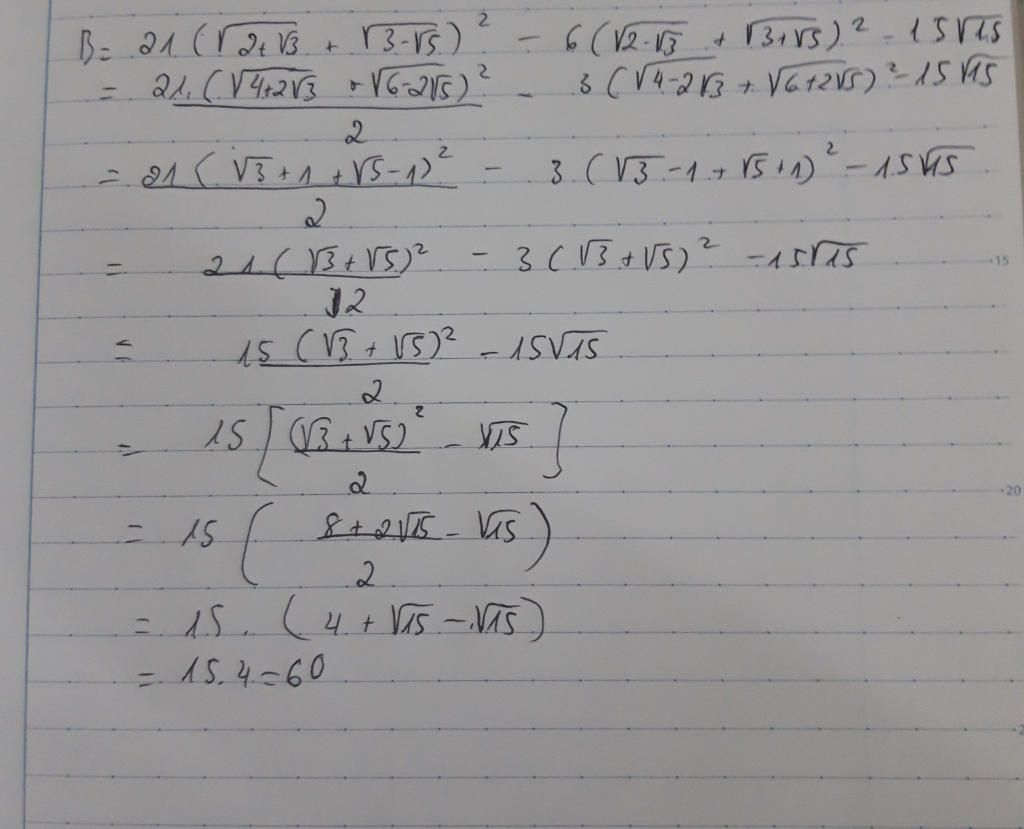 B = 21(√(2+√3) + √(3-√5))² - 6(√(2-√3) + √(3+√5))² - 15√15
= 21.(√(4+2√3) + √(6-2√5))²/2 - 3(√(4-2√3) + √(6+2√5))² - 15√15
= 21(√3+1+√5-1)²/2 - 3(√3-1+√5+1)² - 15√15
= 21(√3+√5)²/2 - 3(√3+√5)² - 15√15
= 15(√3+√5)²/2 - 15√15
= 15[(√3+√5)²/2 - √15]
= 15((8+2√15)/2 - √15)
= 15.(4+√15-√15)
= 15.4=60
15
20